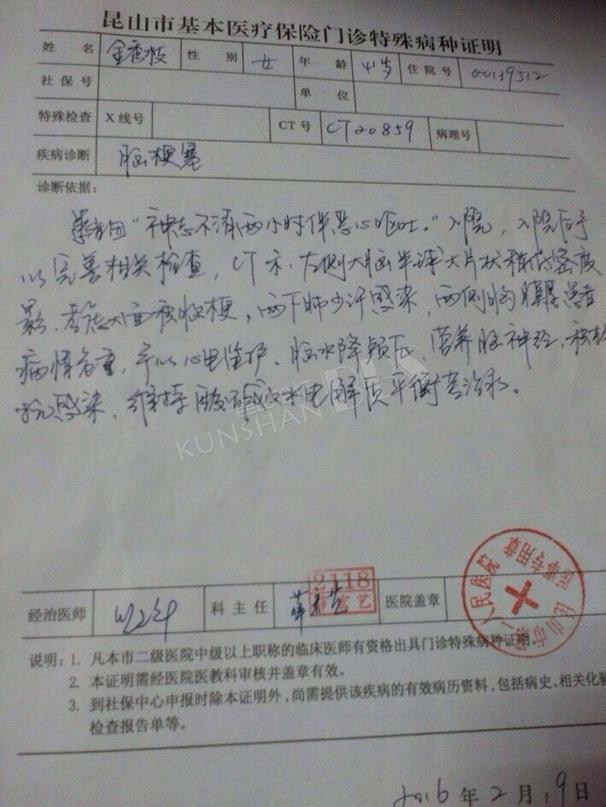 昆山市基本医疗保险门诊特殊病种证明
姓名 金 枝 性别 女 年龄 41岁 住院号 00139512
社保号 单位
特殊检查 X线号 CT号 CT20859 病理号
疾病诊断 脑梗塞
诊断依据:
患者因“神志不清两小时伴恶心呕吐。”入院,入院后予
以完善相关检查,CT示:左侧大脑半球大片状稍低密度
影,考虑大面积脑梗,两下肺少许感染,两侧胸膜 患者
病情危重,予以心电监护、脱水降颅压、营养脑神经、积极
抗感染、维持酸碱及水电解质平衡等治疗。
KUNSHAN
经治医师 科主任 2118 医院盖章
昆山市第一人民医院 医事专用章
说明:1. 凡本市二级医院中级以上职称的临床医师有资格出具门诊特殊病种证明
2. 本证明需经医院医教科审核并盖章有效。
3. 到社保中心申报时除本证明外,尚需提供该疾病的有效病历资料,包括病史、相关化验
检查报告单等。
2016年2月19日